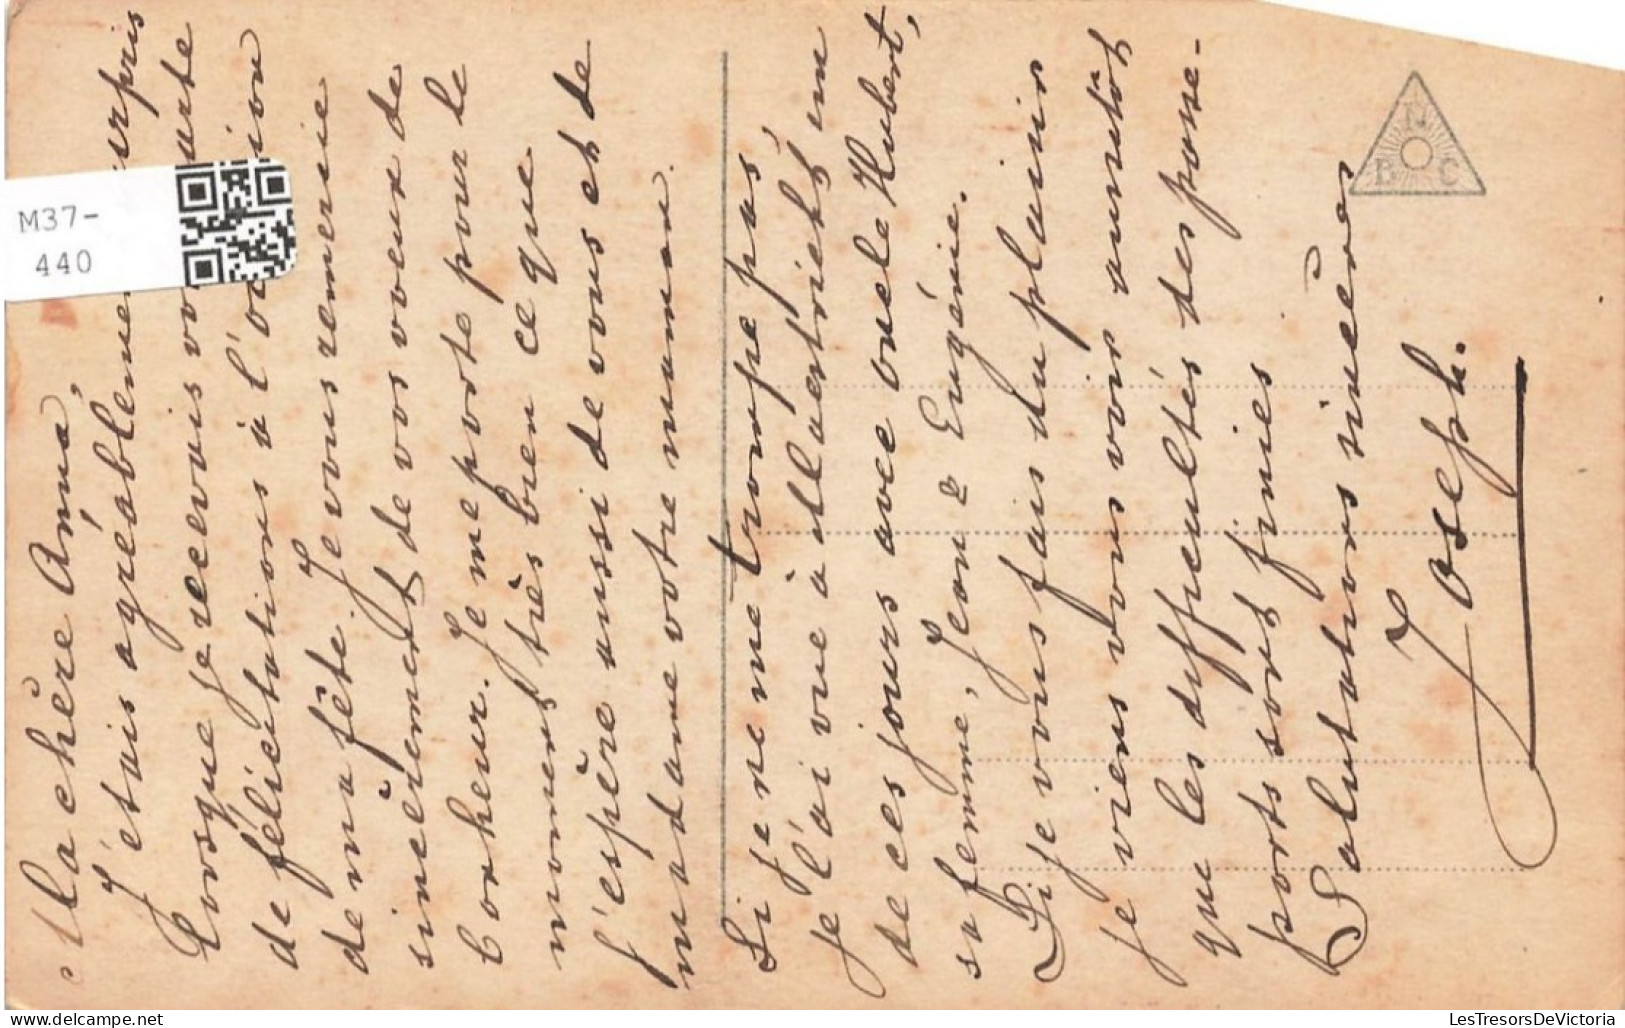 Ma chère Anna,
J'étais agréablement surpris
lorsque je recevais votre carte
de félicitations à l'occasion
de ma fête. Je vous remercie
sincèrement de vos voeux de
bonheur. Je me porte pour le
moment très bien ce que
j'espère aussi de vous et de
madame votre maman.
Si je ne me trompe pas,
je l'ai vue à Maestricht un
de ces jours avec oncle Hubert,
sa femme, Jean & Eugénie.
Si je vous fais du plaisir
je viens vous voir aussitôt
que les difficultés des passe-
ports sont finies
Salutations sincères
Joseph.
N
B C
M37-
440
LesTresorsDeVictoria.com
LesTresorsDeVictoria